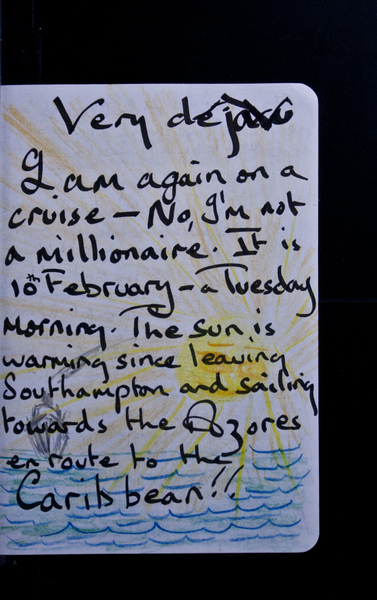 Very deja vu
I am again on a
cruise – No, I'm not
a millionaire. It is
10th February – a Tuesday
Morning. The sun is
warming since leaving
Southampton and sailing
towards the Azores
en route to the
Caribbean!!